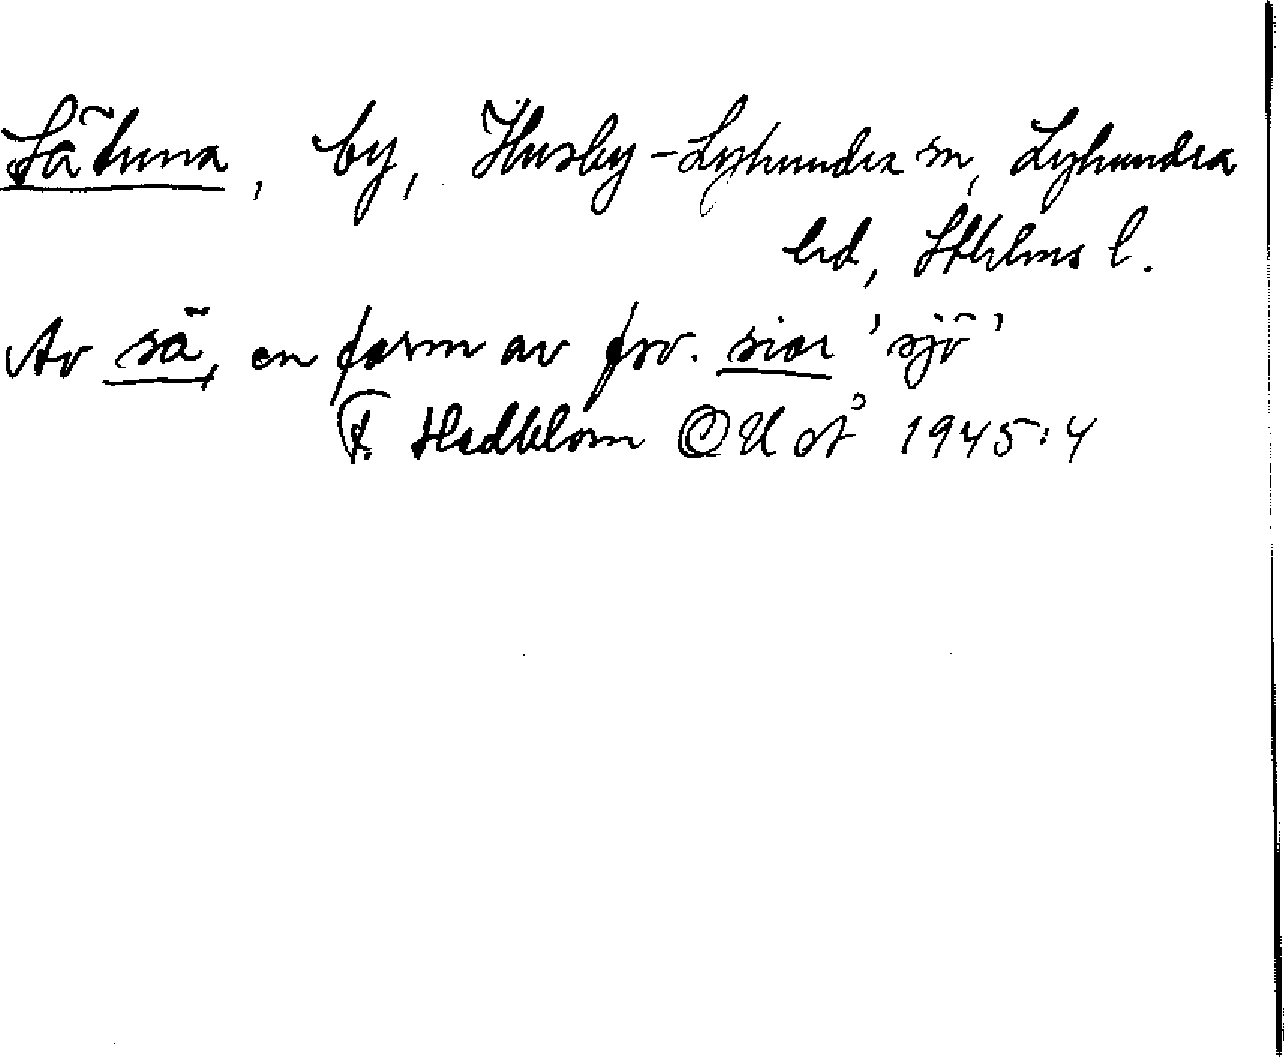 Sätuna, by, Husby-Lyhundra sn, Lyhundra
hd, Sthlms l.
Av sä, en form av fsv. siar 'sjö'
F. Hedblom OUÅ 1945:4